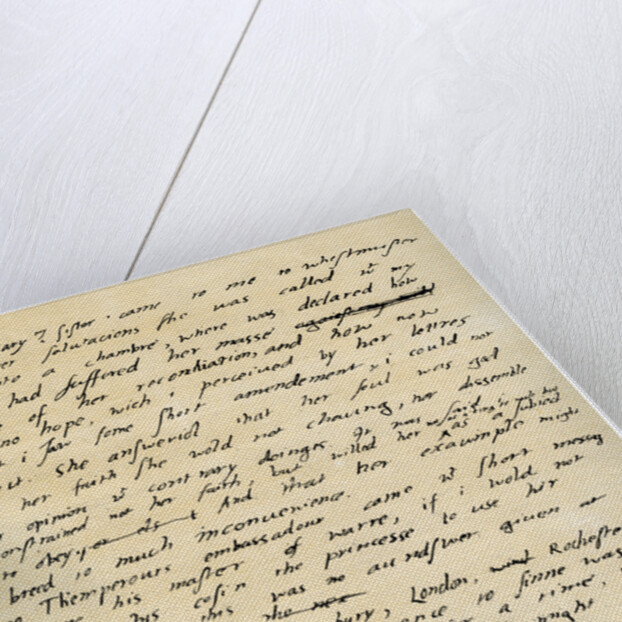 ary ⁊ sister came to me to whestminster
er salutacions she was called wt my
to a chambre, where was declared how
had suffered her masse against my wil
e of her reconsiliation, and how now
no hope, wich i perceived by her lettres
t i saw some short amendement i could not
She answerid that her soul was god
her faith she wold not chaung, nor dissemble
opinion wt contrary doinges. It was said
constrained not her faith, but willed her as a subiect
to obey. And that her exaumple might
breed to much inconvenience.
Themperours embassadour came wt short messag
his master of warre, if i wold not
his cosin the princesse to use her
this was no aundswer given at
the
bury, London, Rocheste
to sinne was
a time,
might